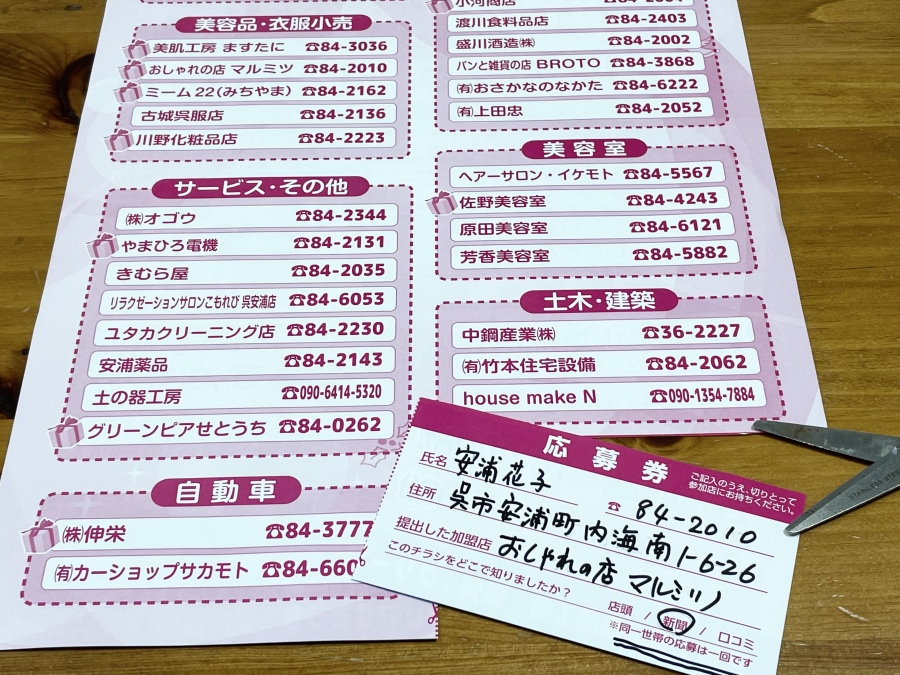 美容品・衣服小売
美肌工房 ますたに ☎84-3036
おしゃれの店 マルミツ ☎84-2010
ミーム22(みちやま) ☎84-2162
古城呉服店 ☎84-2136
川野化粧品店 ☎84-2223
サービス・その他
㈱オゴウ ☎84-2344
やまひろ電機 ☎84-2131
きむら屋 ☎84-2035
リラクゼーションサロンこもれび 呉安浦店 ☎84-6053
ユタカクリーニング店 ☎84-2230
安浦薬品 ☎84-2143
土の器工房 ☎090-6414-5320
グリーンピアせとうち ☎84-0262
自動車
㈱伸栄 ☎84-3777
㈲カーショップサカモト ☎84-660
小河商店
渡川食料品店 ☎84-2403
盛川酒造㈱ ☎84-2002
パンと雑貨の店 BROTO ☎84-3868
㈲おさかなのなかた ☎84-6222
㈲上田忠 ☎84-2052
美容室
ヘアーサロン・イケモト ☎84-5567
佐野美容室 ☎84-4243
原田美容室 ☎84-6121
芳香美容室 ☎84-5882
土木・建築
中鋼産業㈱ ☎36-2227
㈲竹本住宅設備 ☎84-2062
house make N ☎090-1354-7884
応募券
ご記入のうえ、切りとって
参加店にお持ちください。
氏名 安浦花子 ☎ 84-2010
住所 呉市安浦町内海南1-6-26
提出した加盟店 おしゃれの店 マルミツ
このチラシをどこで知りましたか？
店頭 / 新聞 / 口コミ
※同一世帯の応募は一回です